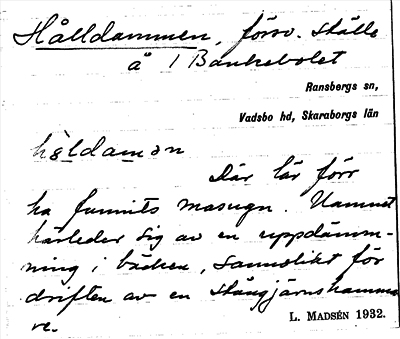 Hålldammen, förv. ställe
å 1 Bankebolet
Ransbergs sn,
Vadsbo hd, Skaraborgs län
hàldamən
Där lär förr
ha funnits masugn. Namnet
härleder sig av en uppdämm-
ning i bäcken, sannolikt för
driften av en stångjärnshamma
re.
L. MADSÉN 1932.